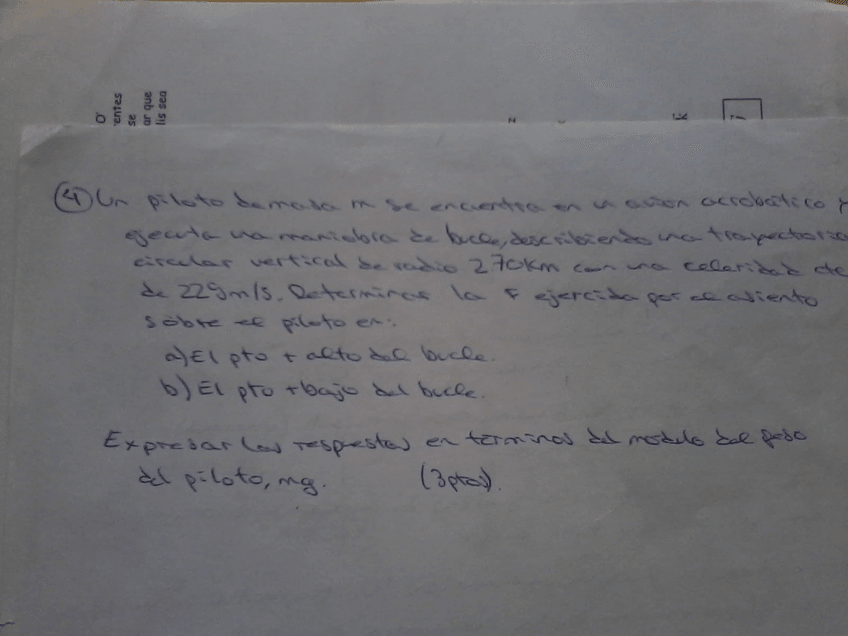 O'
entes
se
ar que
lis sea
z
k
④ Un piloto de masa m se encuentra en un avión acrobático y
ejecuta una maniobra de bucle, describiendo una trayectoria
circular vertical de radio 270km con una celeridad cte
de 229m/s. Determinar la F ejercida por el asiento
sobre el piloto en:
a) El pto + alto del bucle.
b) El pto + bajo del bucle.
Expresar las respuestas en términos del módulo del peso
del piloto, mg. (3ptos).